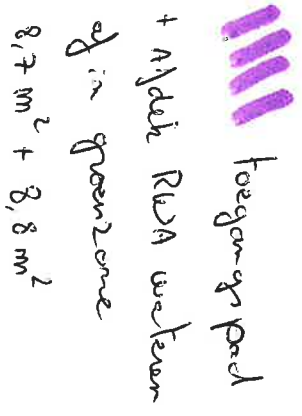 toegangspad
+ Afdek RWA wateren
af in groenzone
8,7 m² + 8,8 m²